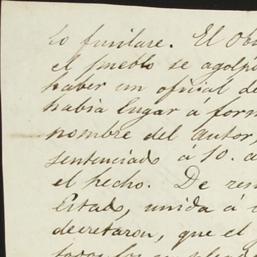 lo fusilase. El Ob
el pueblo se agolp
haber un oficial de
habia lugar á form
nombre del Autor,
sentenciado á 10. a
el hecho. De re
Estado, unida á
decretaron, que el
todos los